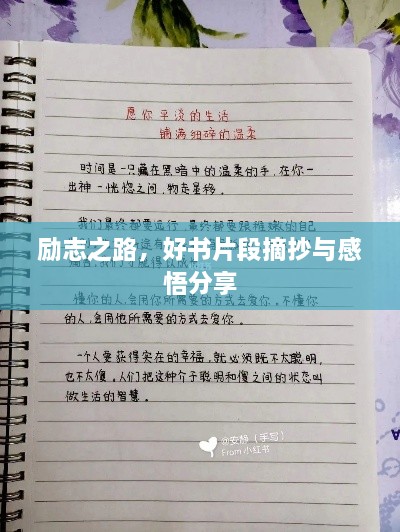 愿你平淡的生活
铺满细碎的温柔
时间是一只藏在黑暗中的温柔的手，在你一
出神一恍惚之间，物走星移。
我们最终都要远行，最终都要跟稚嫩的自己
励志之路，好书片段摘抄与感
悟分享
懂你的人，会用你所需要的方式去爱你。不懂你
的人，会用他所需要的方式去爱你。
一个人要获得实在的幸福，就必须既不太聪明，
也不太傻。人们把这种介于聪明和傻之间的状态叫
做生活的智慧。
@安静（手写）
From 小红书